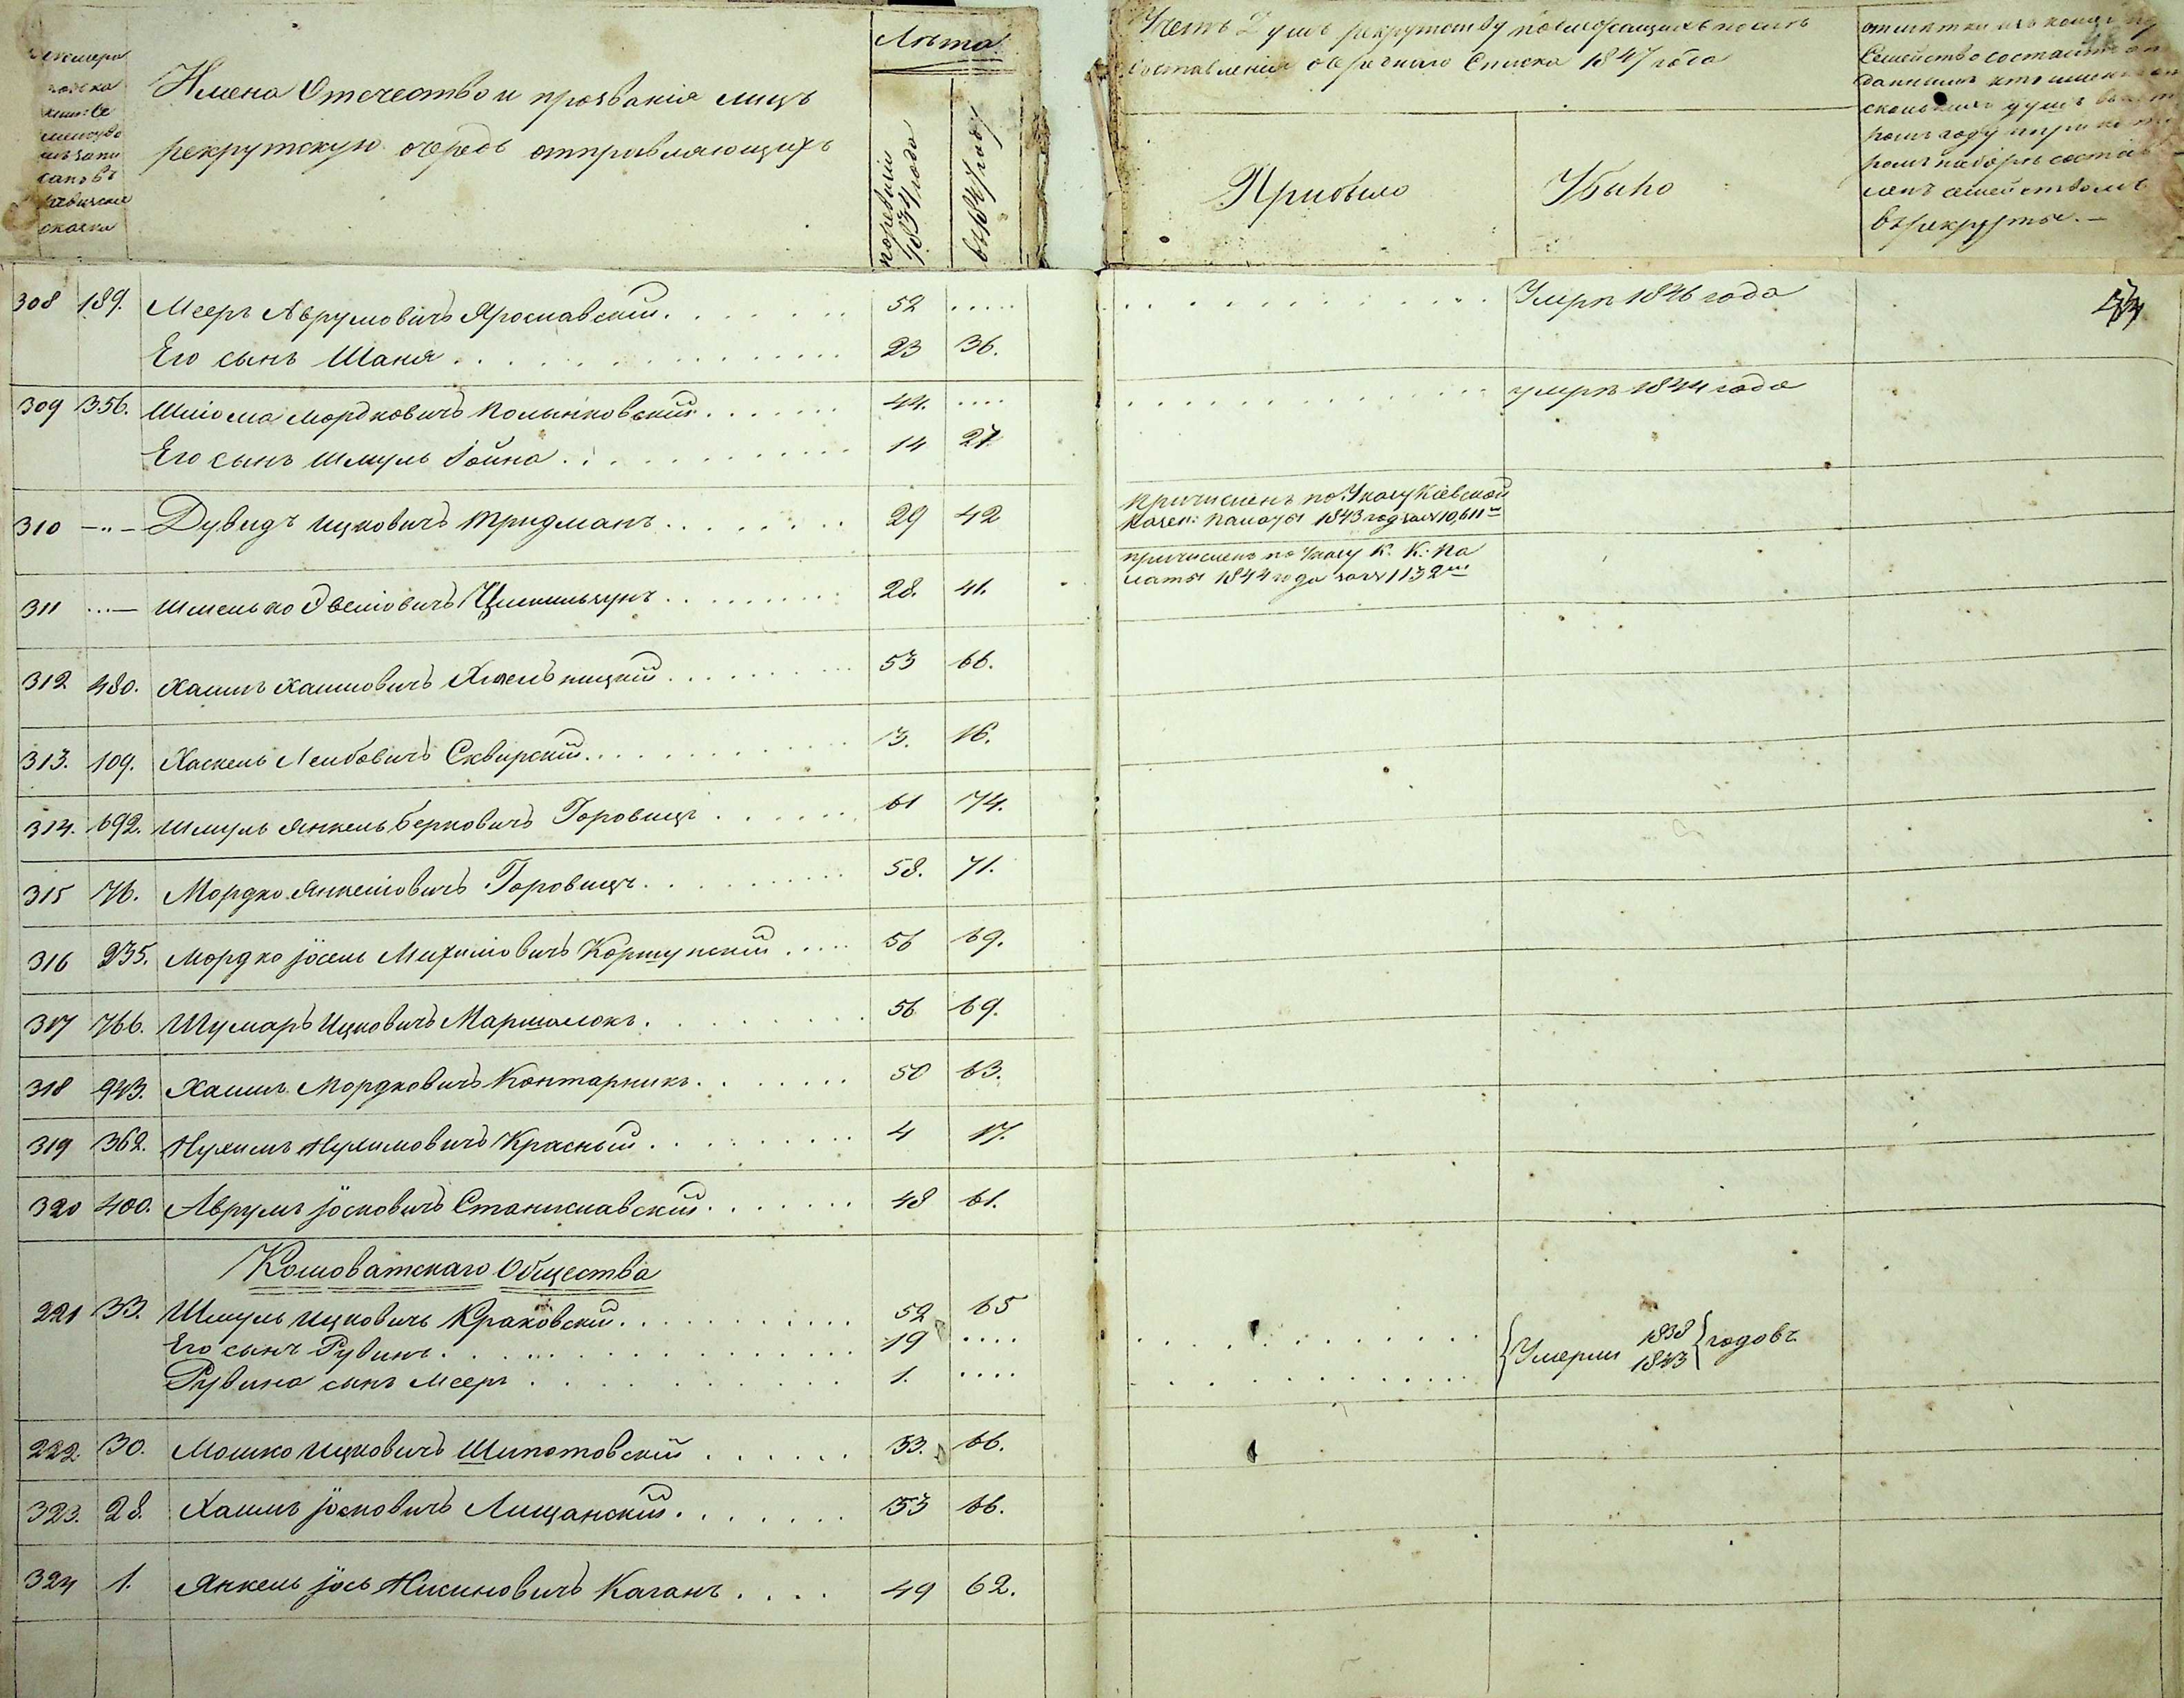 Имена Отечество и прозванія лицъ
рекрутскую очередь отправляющихъ
Лѣта
по ревизіи 1834 года
въ 1847 году
составленія очереднаго Списка 1847 года
Прибыло
Убыло
Семейство состоитъ
въ рекруты.—
308 189. Мееръ Аврумовичъ Ярославскій. 52 ..... Умръ 1846 года
Его сынъ Шаня 23 36.
309 356. Шліома Мордковичъ Полынковскій 44. .... умръ 1844 года
Его сынъ Шмуль Іойна 14 27.
310 -„- Дувидъ Ицковичъ Тридманъ 29 42 Причисленъ по Указу Кіевской
Казен: Палаты 1843 года за № 10,611м
311 ...— Шмелько Эвелiовичъ 28. 41. причисленъ по Указу К. К. Па
латы 1844 года за № 1132м
312 480. Хаимъ Хаимовичъ Хмельницкій 53 66.
313. 109. Хаскель Лейбовичъ Сквирскій 3. 16.
314. 692. Шмуль Янкель Берковичъ Горовицъ 61 74.
315 76. Мордко Янкеліовичъ Горовицъ 58. 71.
316 235. Мордко Іосель Михиліовичъ Коршунскій 56 69.
317 766. Шумаръ Ицковичъ Маршалокъ 56 69.
318 943. Хаимъ Мордковичъ Контарникъ 50 63.
319 362. Нухимъ Нухимовичъ Красный 4 17.
320 400. Аврумъ Іосковичъ Станиславскій 48 61.
Кошоватскаго Общества
221 33. Шмуль Ицковичъ Краковскій 52 65
Его сынъ Рувинъ 19 .... Умерли 1838
Рувина сынъ Мееръ 1. .... 1843 годовъ
222. 30. Мошко Ицковичъ Шипотовскій 53. 66.
323. 28. Хаимъ Іосковичъ Лищанскій 53 66.
324 1. Янкель Іось Нисиновичъ Каганъ 49 62.